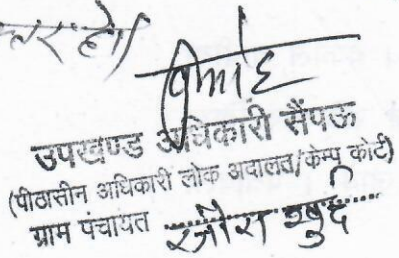 उपखण्ड अधिकारी सैंपऊ
(पीठासीन अधिकारी लोक अदालत/केम्प कोर्ट)
ग्राम पंचायत रजौरा खुर्द